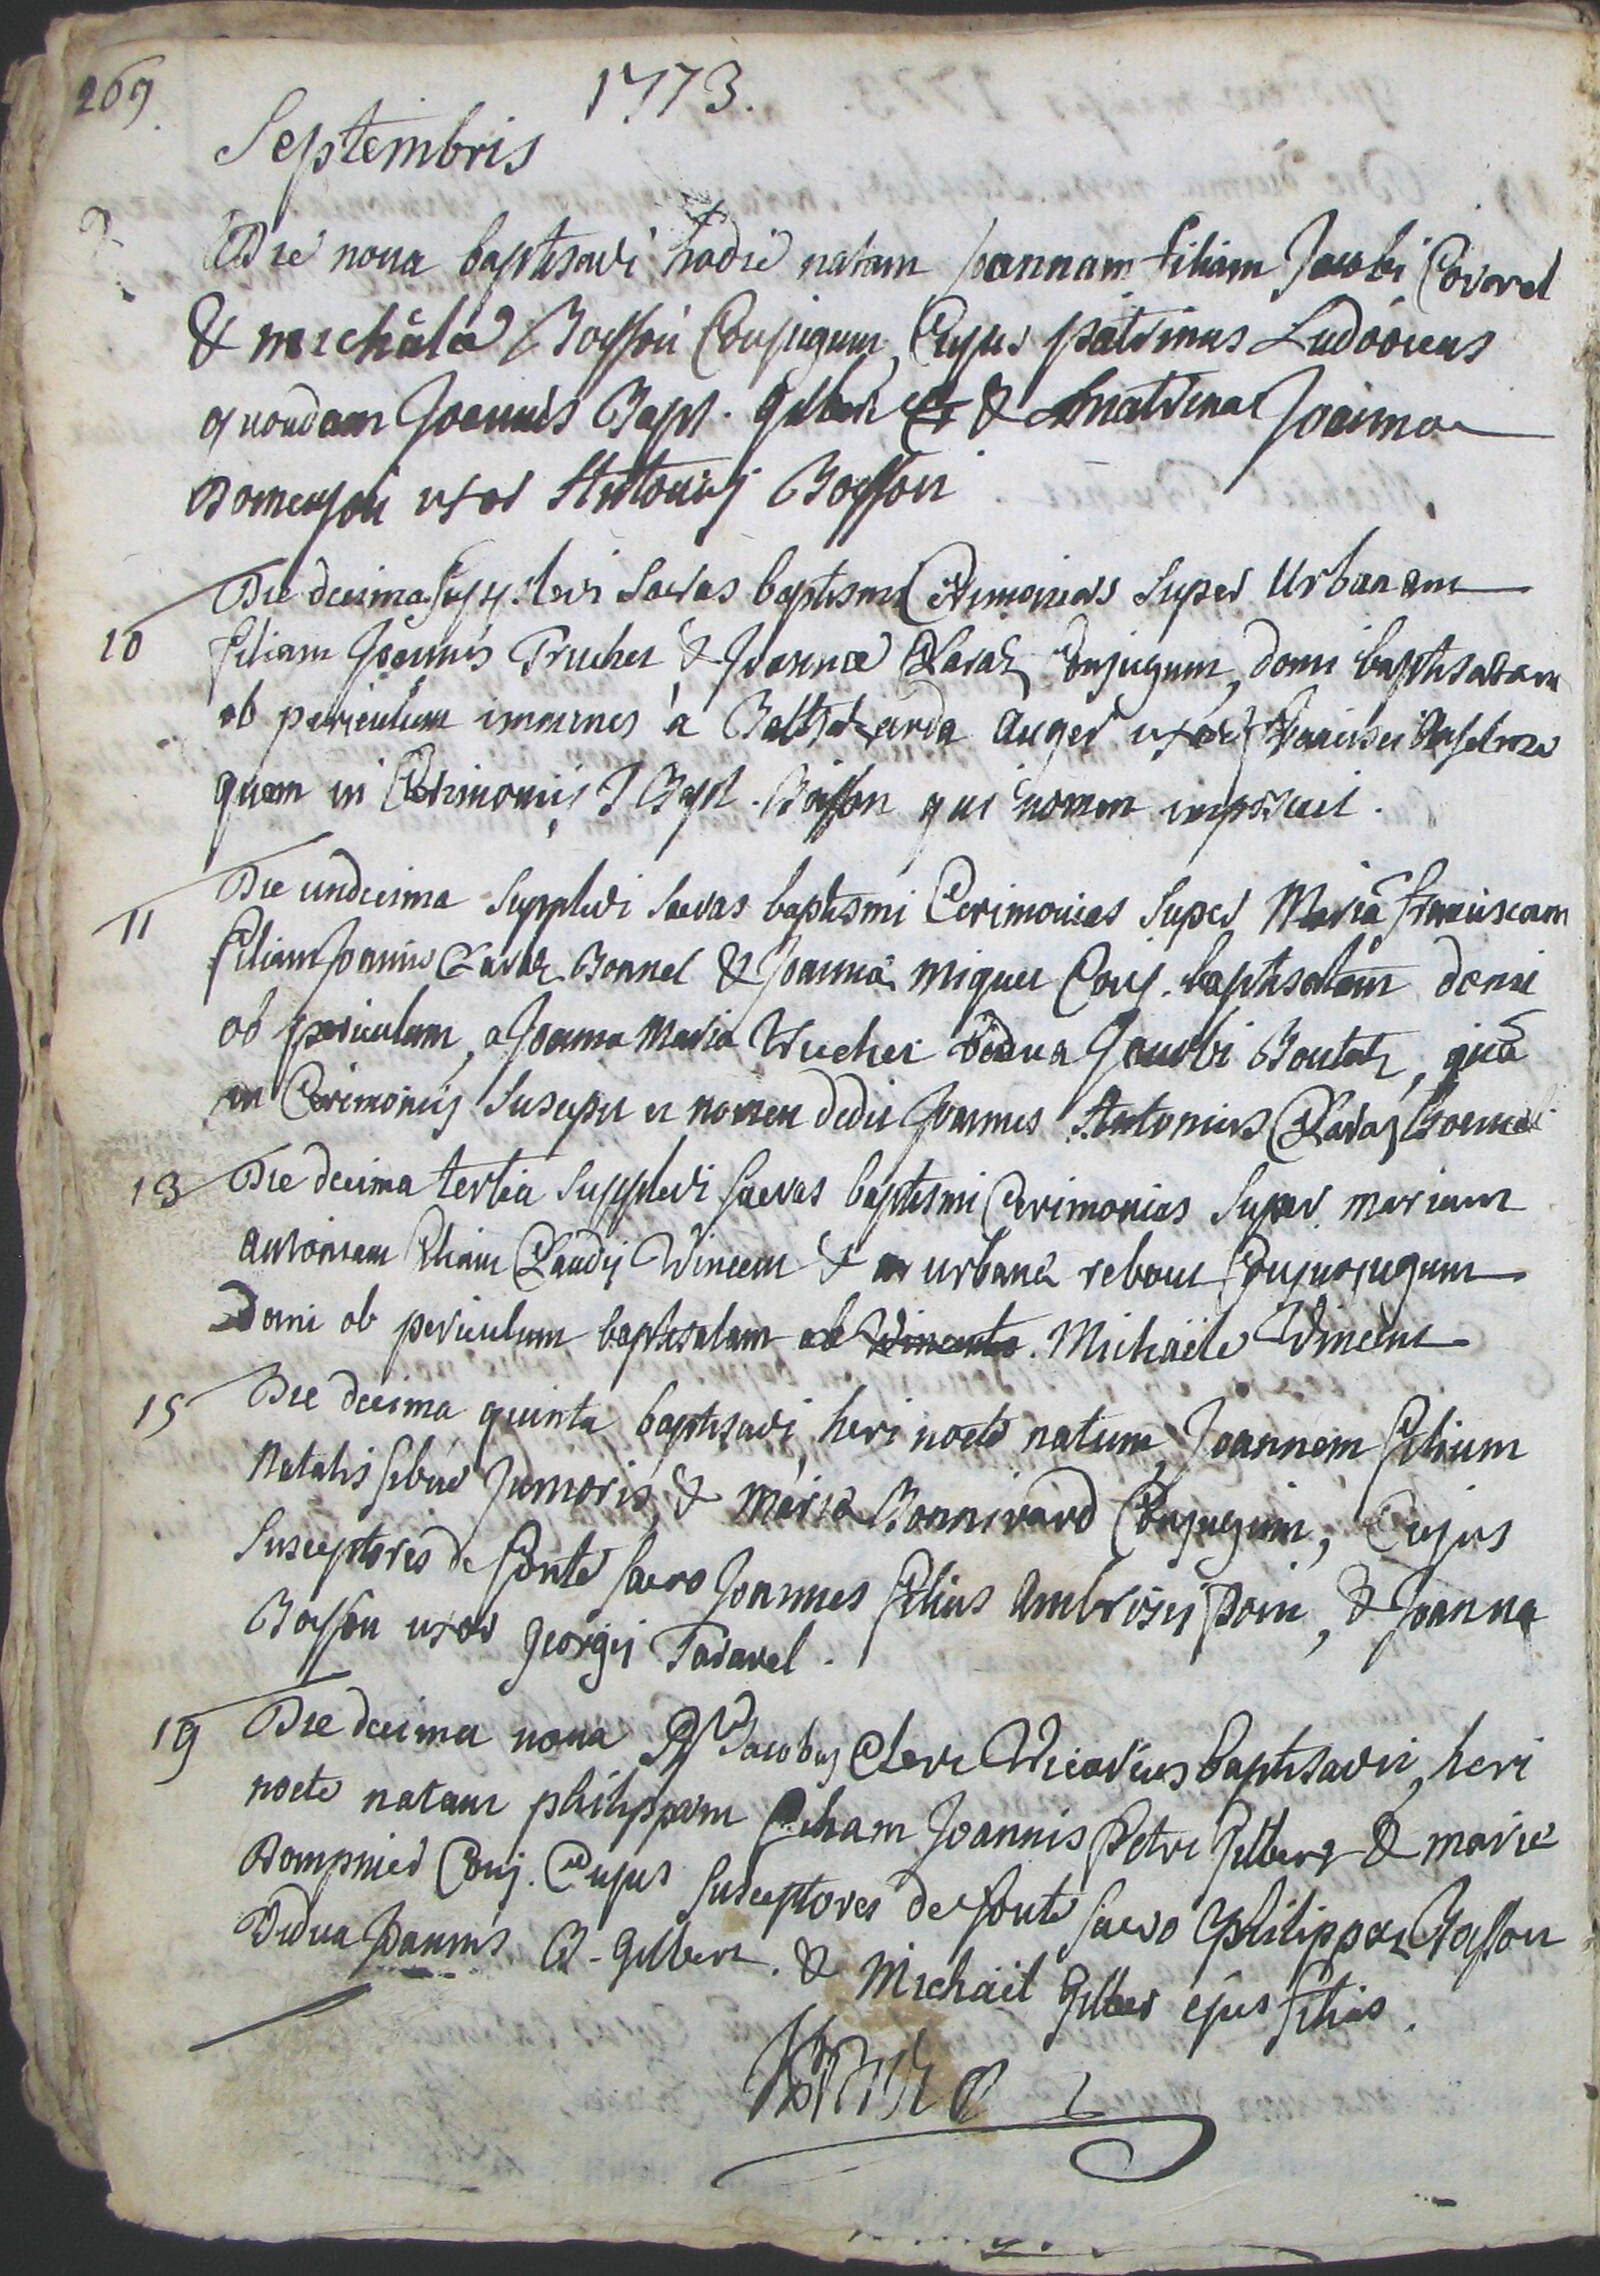 269.
1773.
Septembris
Die nona baptisavi hodie natam Joannam filiam Jacobi Coverel
& michaela Bosson Conjugum, Cujus patrinus Ludovicus
quondam Joannis Bapt. gilbert & matrina Joanna
Domenjon uxor Antonij Bosson
10
Die decima supplevi sacras baptismi Cerimonias super Urbanam
filiam Joannis Trucher & Joannæ Claraz Conjugum, domi baptisatam
ob periculum imminens a Balthazarda auger uxore Francisci
quam in Cerimonijs J Bapt. Bosson qui nomen imposuit.
11
Die undecima supplevi sacras baptismi Cerimonias super Mariã franciscam
filiam Joannis Claraz Bonnel & Joanna miguet Conj. baptisatam domi
ob periculum, a Joanna Maria Vucher vidua Jacobi Boutaz, quã
in Cerimonijs suscepit et nomen dedit Joannes Antonius Claraz Bonnel
13
Die decima tertia supplevi sacras baptismi Cerimonias super mariam
antoniam filiam Claudij Wincent & urbana rebout
Domi ob periculum baptisatam ab Wincentio. Michaële Vincent
15
Die decima quinta baptisavi, heri nocte natum, Joannem filium
Natalis Junioris, & maria Bonnivard Conjugum, Cujus
susceptores de fonte sacro Joannes filius ambrosij Poin, & Joanna
Bosson uxor georgij Taravel.
19
Die decima nona Rdus Jacobus Clerc Vicarius baptisavit, heri
nocte natam philippam filiam Joannis Petri gilbert & marie
Dompnier Conj. Cujus susceptores de fonte sacro Philippa Bosson
Vidua Joannis B. gilbert. & Michaël gilber ejus filius.